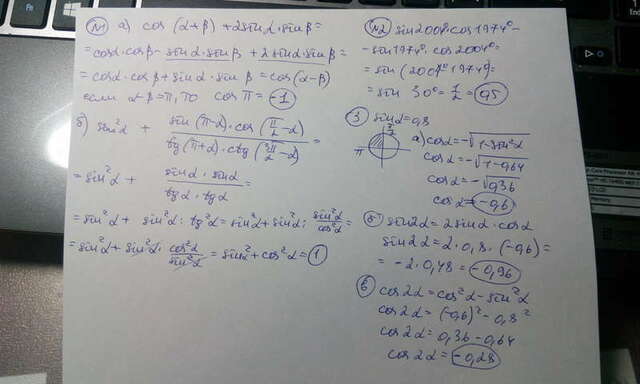 №1 а) cos (α+β) + 2sinα·sinβ =
= cosα·cosβ - sinα·sinβ + 2sinα·sinβ =
= cosα·cosβ + sinα·sinβ = cos(α-β)
если α-β=π, то cos π = -1
б) sin²α + sin(π-α)·cos(π/2-α) / tg(π+α)·ctg(3π/2-α) =
= sin²α + sinα·sinα / tgα·tgα =
= sin²α + sin²α : tg²α = sin²α + sin²α : sin²α/cos²α =
= sin²α + sin²α · cos²α/sin²α = sin²α + cos²α = 1
№2 sin2004°·cos1974° -
- sin1974°·cos2004° =
= sin (2004° 1974°) =
= sin 30° = 1/2 = 0,5
3 sinα = 0,8
π/2
π
а) cosα = -√1-sin²α
cosα = -√1-0,64
cosα = -√0,36
cosα = -0,6
б sin2α = 2sinα·cosα
sin2α = 2·0,8·(-0,6) =
= -2·0,48 = -0,96
в cos2α = cos²α - sin²α
cos2α = (-0,6)² - 0,8²
cos2α = 0,36 - 0,64
cos2α = -0,28